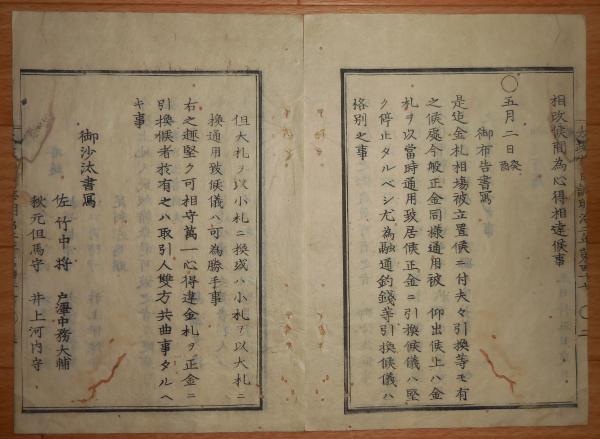 相改候間為心得相達候事
○五月二日癸酉
御布告書寫
是迄金札相場被立置候ニ付夫々引換等モ有
之候處今般正金同樣通用被　仰出候上ハ金
札ヲ以當時通用致居候正金ニ引換候儀ハ堅
ク停止タルベシ尤為融通釣錢等引換候儀ハ
格別之事
但大札ヲ以小札ニ換或ハ小札ヲ以大札ニ
換通用致候儀ハ可為勝手事
右之趣堅ク可相守萬一心得違金札ヲ正金ニ
引換候者於有之ハ取引人雙方共曲事タルヘ
キ事
御沙汰書寫
佐竹中將　戸澤中務大輔
秋元但馬守　井上河内守